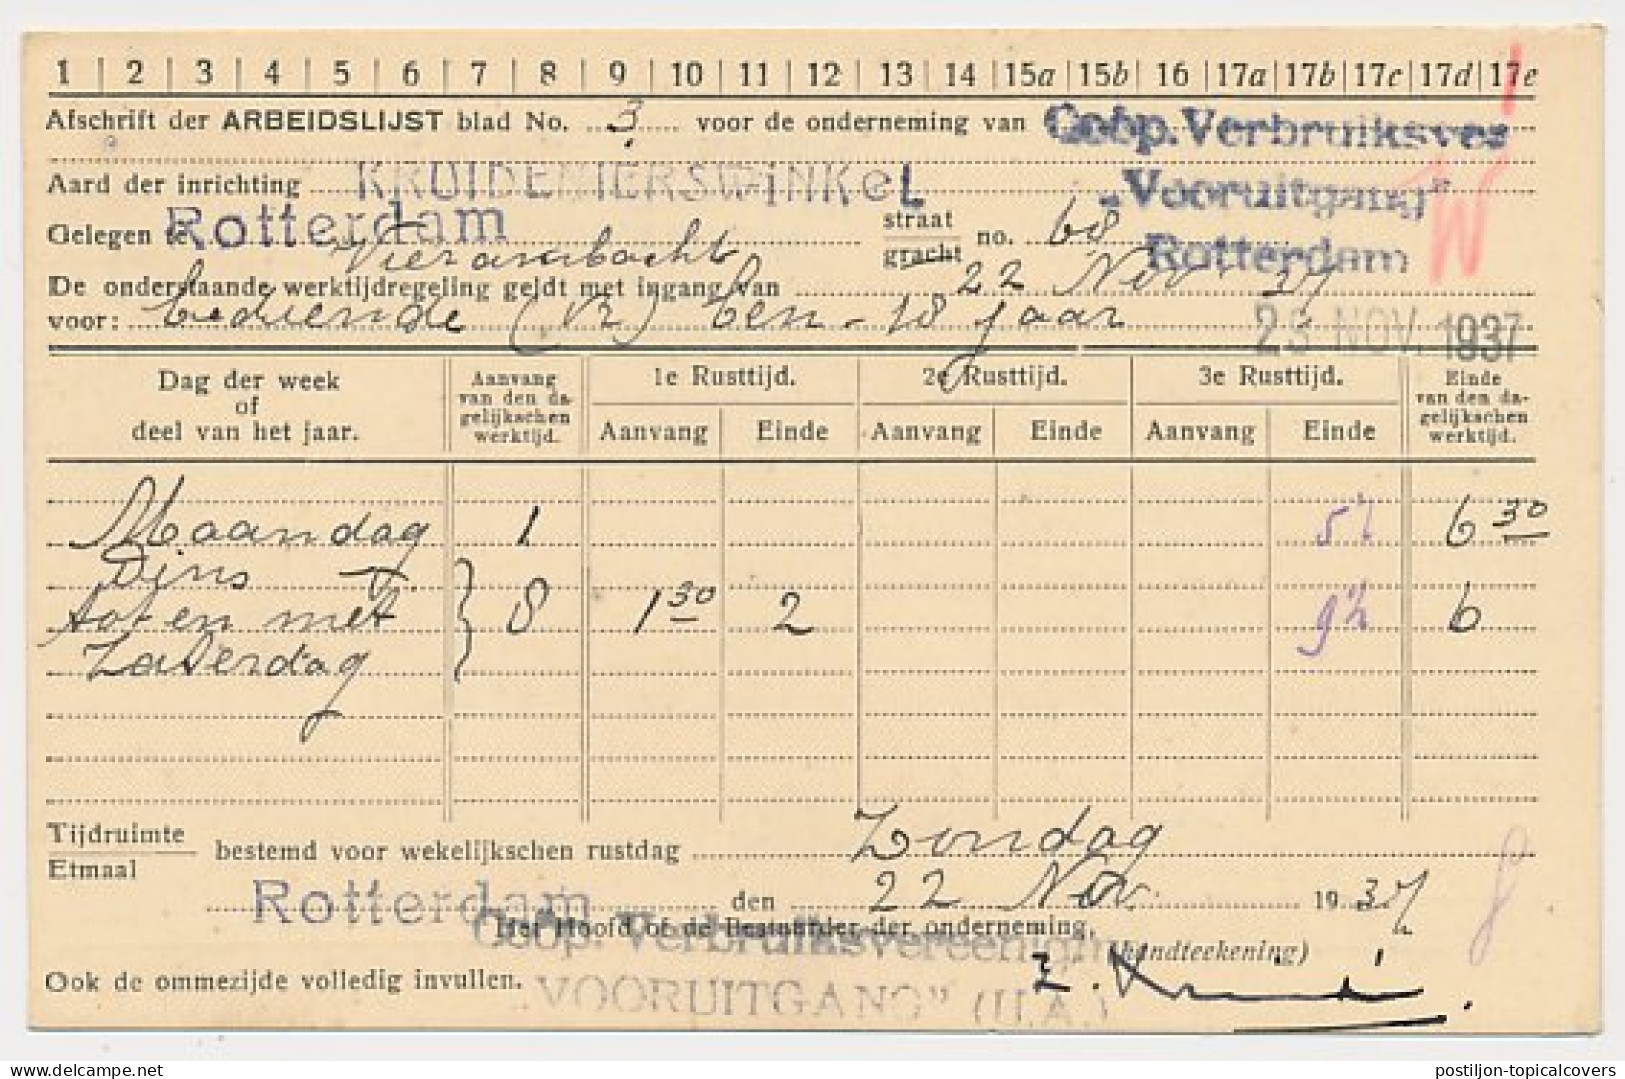 1 | 2 | 3 | 4 | 5 | 6 | 7 | 8 | 9 | 10 | 11 | 12 | 13 | 14 | 15a | 15b | 16 | 17a | 17b | 17c | 17d | 17e
Afschrift der ARBEIDSLIJST blad No. 3. voor de onderneming van Coöp. Verbruiksver
Aard der inrichting KRUIDENIERSWiNKeL „Vooruitgang”
Gelegen te Rotterdam Vierambacht straat gracht no. 68 Rotterdam
De onderstaande werktijdregeling geldt met ingang van 22 Nov 37
voor: bediende (Vr) ben. 18 jaar 23 NOV. 1937
Dag der week of deel van het jaar. Aanvang van den dagelijkschen werktijd. 1e Rusttijd. 2e Rusttijd. 3e Rusttijd. Einde van den dagelijkschen werktijd.
Aanvang Einde Aanvang Einde Aanvang Einde
Maandag 1 5½ 6 30
Dins
tot en met 8 1 30 2 9½ 6
Zaterdag
Tijdruimte
Etmaal bestemd voor wekelijkschen rustdag Zondag
Rotterdam den 22 Nov. 1937
Het Hoofd of de Bestuurder der onderneming,
Coöp. Verbruiksvereeniging (handteekening)
Ook de ommezijde volledig invullen.
„VOORUITGANG” (U.A.)
postiljon-topicalcovers